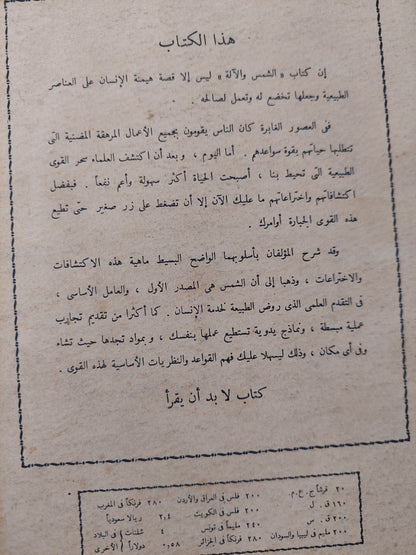 هذا الكتاب
إن كتاب «الشمس والآلة» ليس إلا قصة هيمنة الإنسان على العناصر
الطبيعية وجعلها تخضع له وتعمل لصالحه .
فى العصور الغابرة كان الناس يقومون بجميع الأعمال المرهقة المضنية التى
تتطلبها حياتهم بقوة سواعدهم . أما اليوم ، وبعد أن اكتشف العلماء سحر القوى
الطبيعية التى تحيط بنا ، أصبحت الحياة أكثر سهولة وأعم نفعاً . فبفضل
اكتشافاتهم واختراعاتهم ما عليك الآن إلا أن تضغط على زر صغير حتى تطيع
هذه القوى الجبارة أوامرك .
وقد شرح المؤلفان بأسلوبهما الواضح البسيط ماهية هذه الاكتشافات
والاختراعات ، وذهبا إلى أن الشمس هى المصدر الأول ، والعامل الأساسى ،
فى التقدم العلمى الذى روض الطبيعة لخدمة الإنسان . كما أكثرا من تقديم تجارب
عملية مبسطة ، ونماذج يدوية تستطيع عملها بنفسك ، وبمواد تجدها حيث تشاء
وفى أى مكان ، وذلك ليسهلا عليك فهم القواعد والنظريات الأساسية لهذه القوى .
كتاب لا بد أن يقرأ
٢٠ قرشاً ج . ع . م . ٢٠٠ فلس فى العراق والأردن ٢٨٠ فرنكاً فى المغرب
١٦٠ ق . ل ٢٠٠ فلس فى الكويت ٢,٤ ريالا سعودياً
٢٠٠ ق . س ٢٤٠ مليماً فى تونس ٤ شلنات } فى البلاد
٢٠٠ مليم فى ليبيا والسودان ٢٨٠ فرنكاً فى الجزائر ٠,٥٨ دولاراً } الأخرى